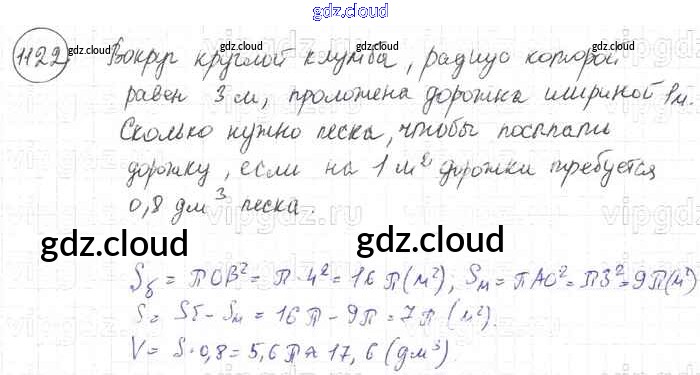 gdz.cloud
1122. Вокруг круглой клумбы, радиус которой
равен 3 м, проложена дорожка шириной 1 м.
Сколько нужно песка, чтобы посыпать
дорожку, если на 1 м² дорожки требуется
0,8 дм³ песка.
gdz.cloud gdz.cloud
Sб = πOB² = π·4² = 16π(м²); Sм = πAO² = π3² = 9π(м²)
S = Sб - Sм = 16π - 9π = 7π (м²).
V = S·0,8 = 5,6π ≈ 17,6 (дм³).